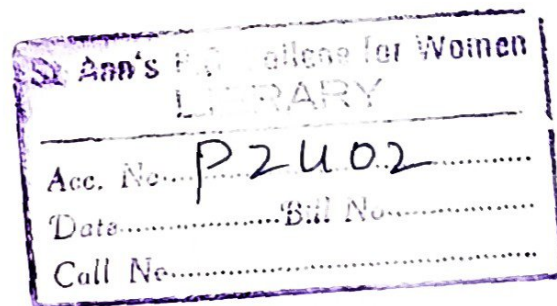 St. Ann's P.G. College for Women
LIBRARY
Acc. No.....P2402.....
Date....................Bill No....................
Call No........................................